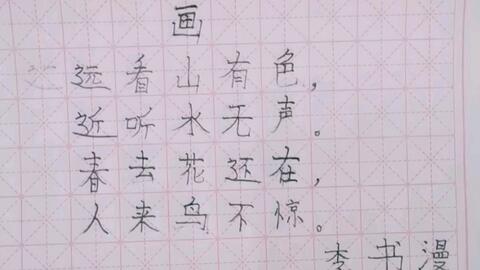 画
远看山有色，
近听水无声。
春去花还在，
人来鸟不惊。
李书漫